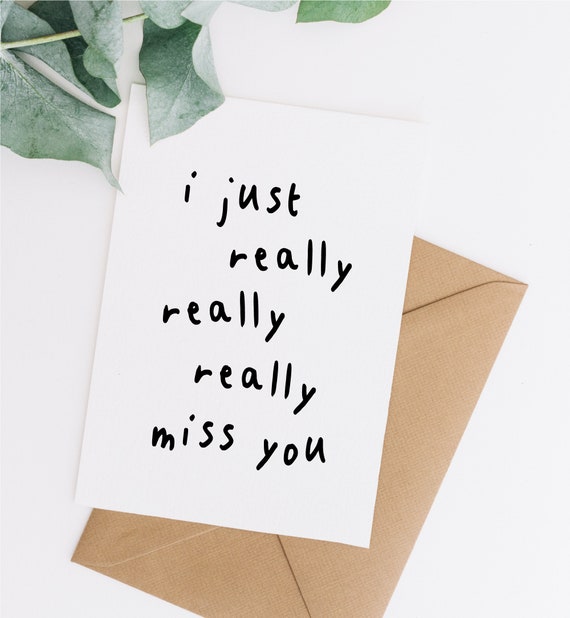 i just
really
really
really
miss you